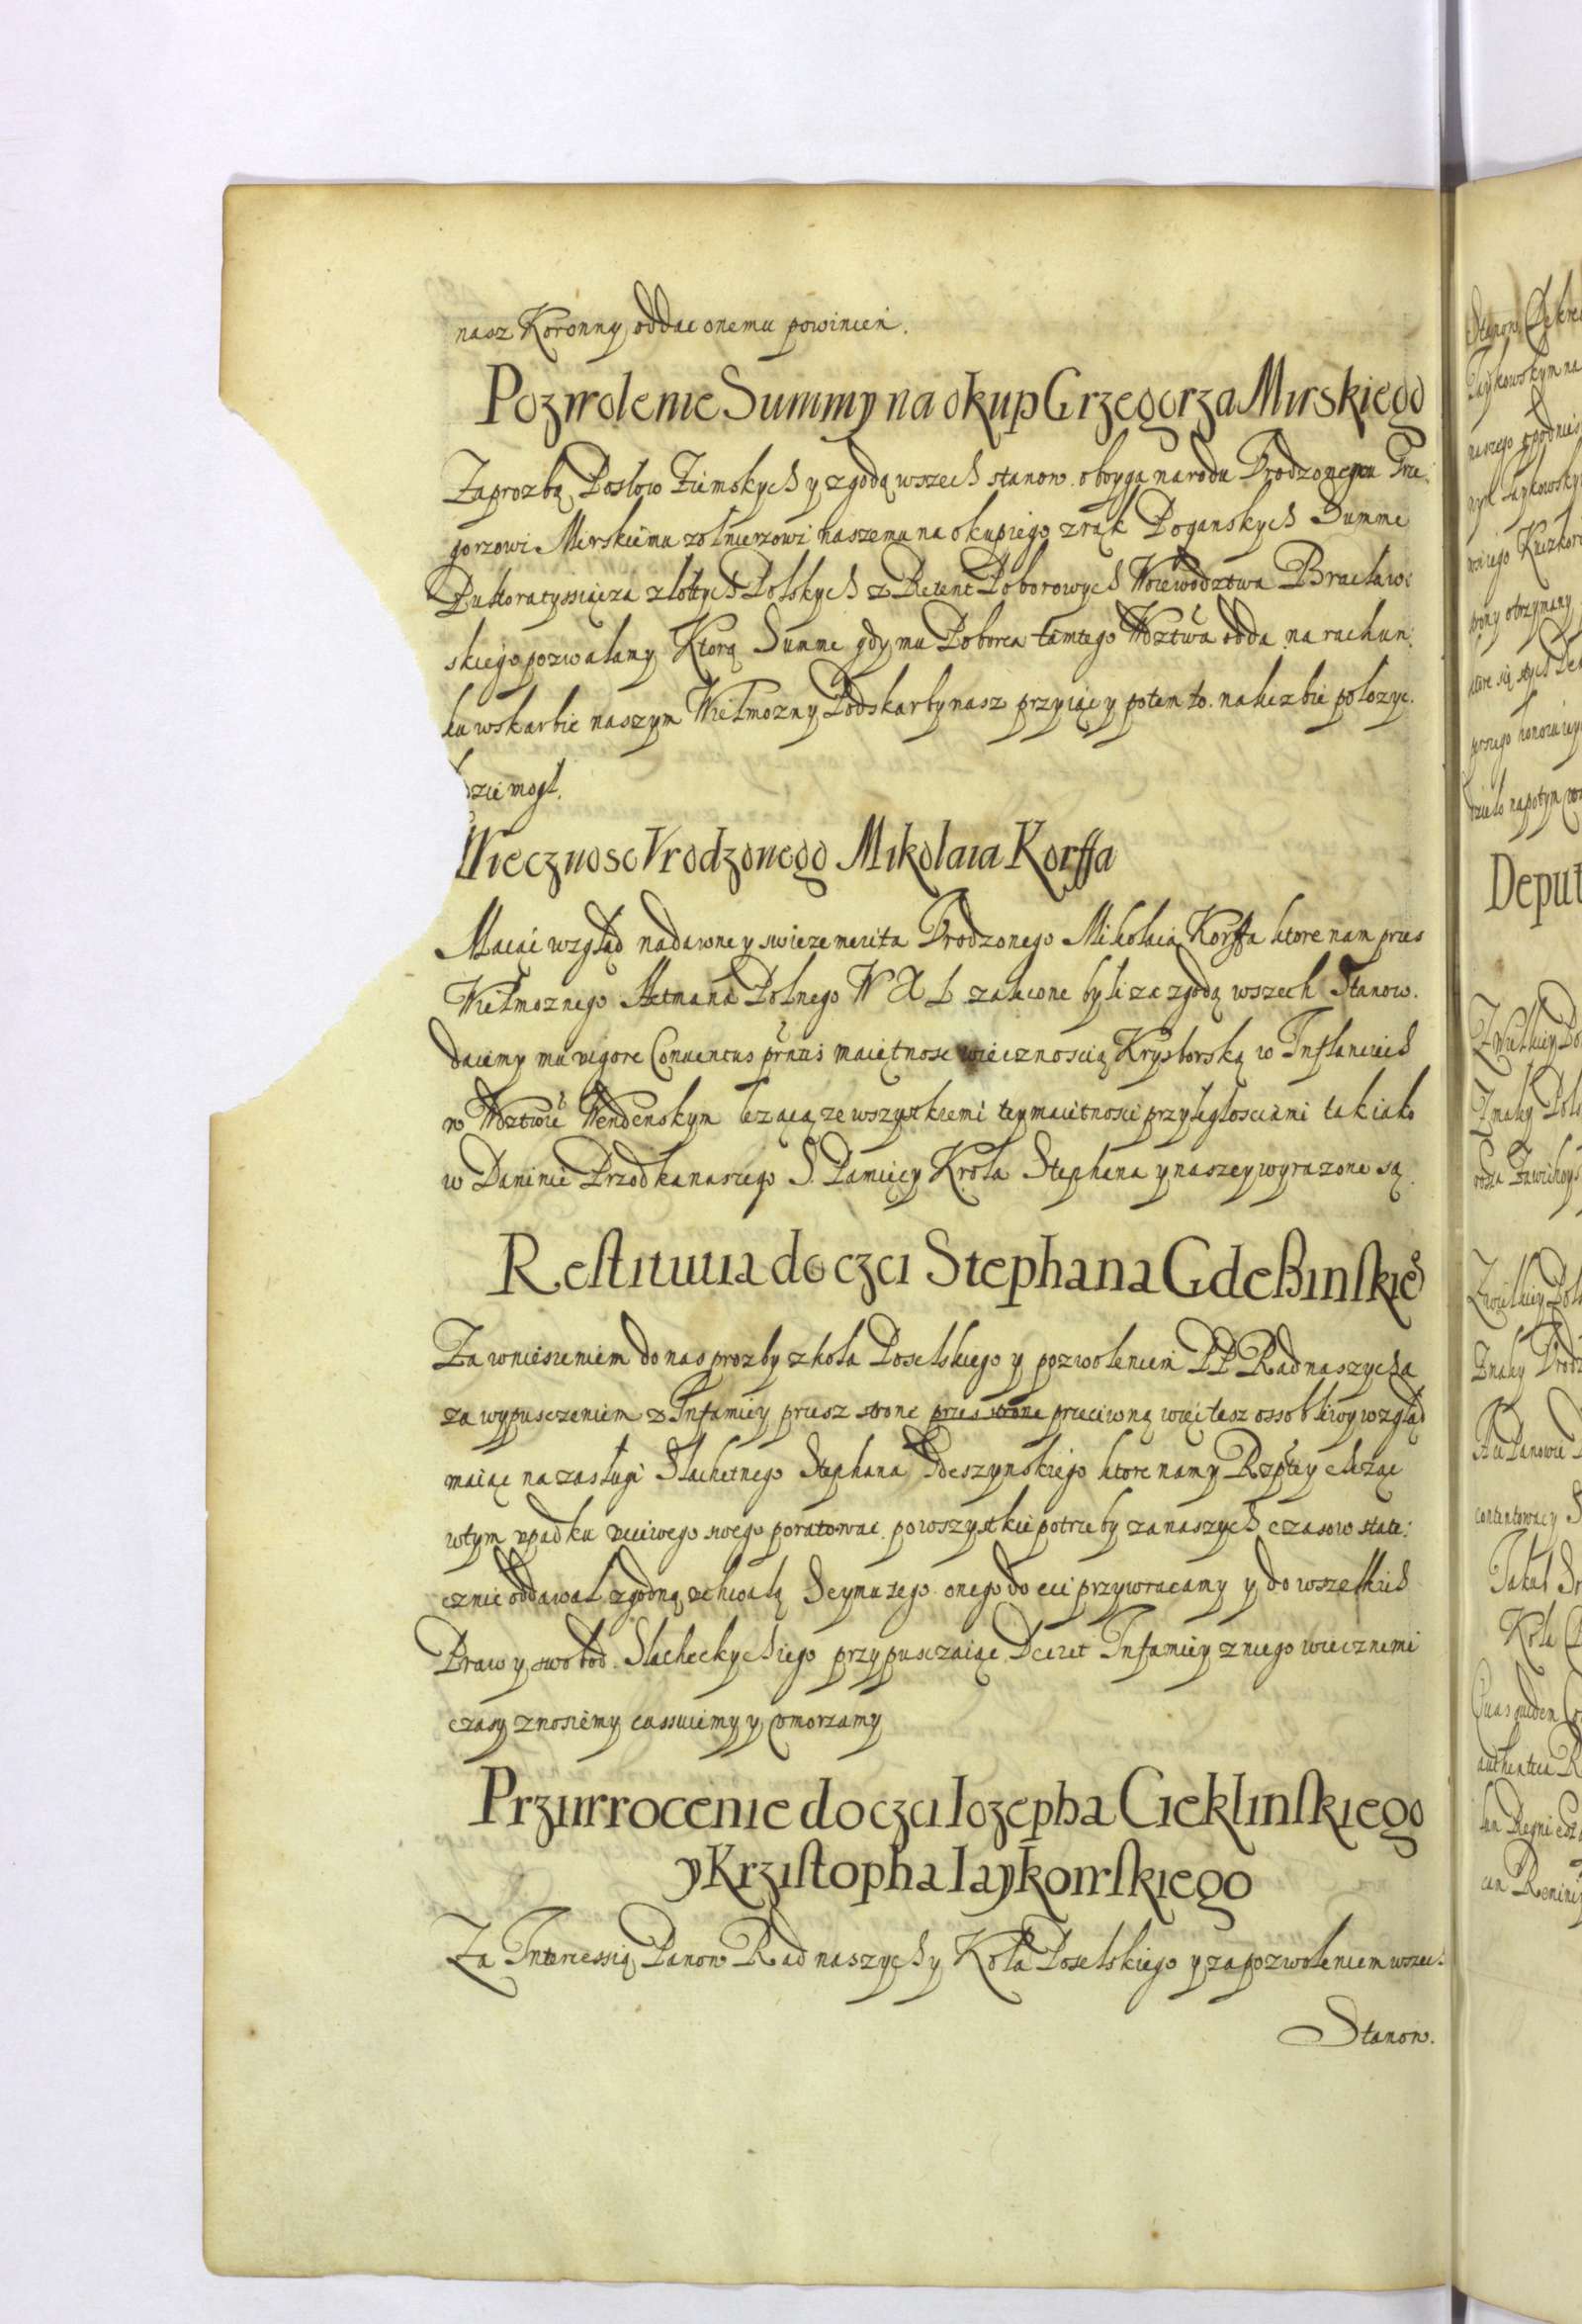 nasz Koronny oddac onemu powinien.
Pozwolenie Summy na okup Grzegorza Mirskiego
Za prozbą Posłow Ziemskych y zgodą wszech stanow oboyga narodu Vrodzonemu Grze:
gorzowi Mirskiemu zołnierzowi naszemu na okup iego z rąk Poganskych Summe
Pułtoratyssiącza złotych Polskych z Retent Poborowych Woiewodztwa Bracław:
skiego pozwalamy Ktorą Summe gdy mu Poborca tamtego Wdztwa odda na rachun:
ku w skarbie naszym Wielmozny Podskarby nasz przyiąc y potem to na liczbie polozyc.
dzie mogł.
Wiecznosc Vrodzonego Mikolaia Korffa
Maiąc wzgląd na dawne y swieze merita Vrodzonego Mikolaia Korffa ktore nam przes
Wielmoznego Hetmana Polnego W X L zalecone byli za zgodą wszech Stanow.
daiemy mu vigore Conuentus pñtis maiętnosc wiecznoscią Krystorską w Inflanciech
w Wdztwie Wendenskym lezącą ze wszystkiemi tey maiętnosci przyległosciami tak iako
w Daninie Przodka naszego S. Pamięcy Krola Stephana y naszey wyrazone są.
Restitutia do czci Stephana Gdeßinskieº
Za wniesieniem do nas prozby z koła Poselskiego y pozwoleniem PP Rad naszych a
za wypusczeniem z Infamiey przesz strone przes strone przeciwną więc tesz ossobliwy wzgląd
maiąc na zasługi Slachetnego Stephana Gdeszynskiego ktore nam y Rzpltey chcząc
w tym vpadku vcciwego swego poratowac po wszystkie potrzeby za naszych czasow state:
cznie oddawał zgodną vchwałą Seymu tego onego do cci przywracamy y do wszelkich
Praw y swobod Slacheckych iego przypusczaiąc Decret Infamiey z niego wiecznemi
czasy znosiemy cassuiemy y vmorzamy
Przywrocenie do czci Iozepha Cieklinskiego
y Krzistopha Iaykowskiego
Za Intercessią Panow Rad naszych y Koła Poselskiego y za pozwoleniem wszech
Stanow.